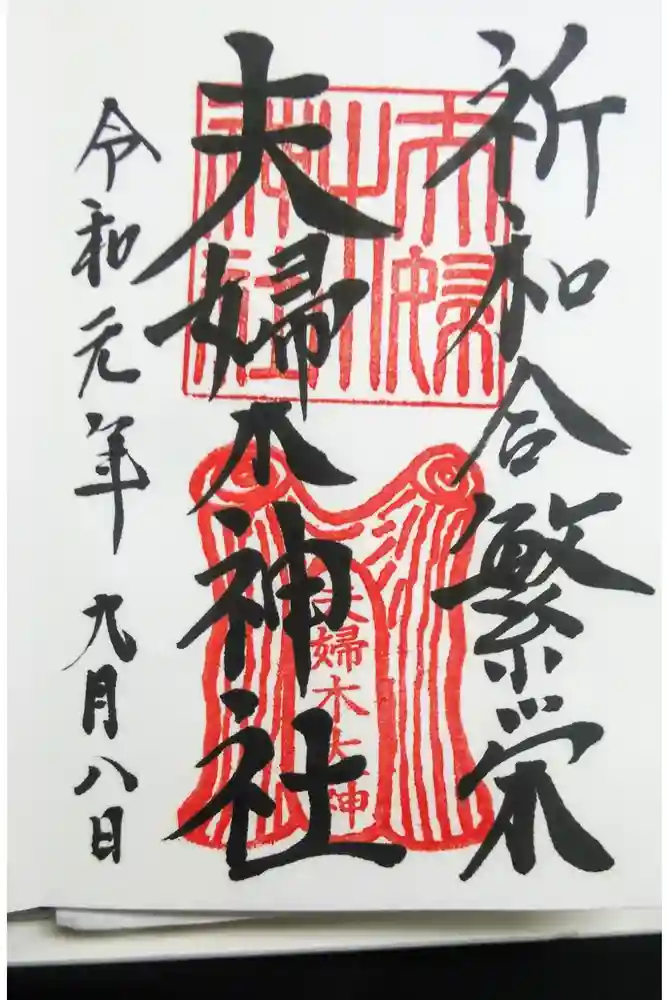 祈和合繁栄
夫婦木神社
夫婦木神社
夫婦木大神
令和元年九月八日